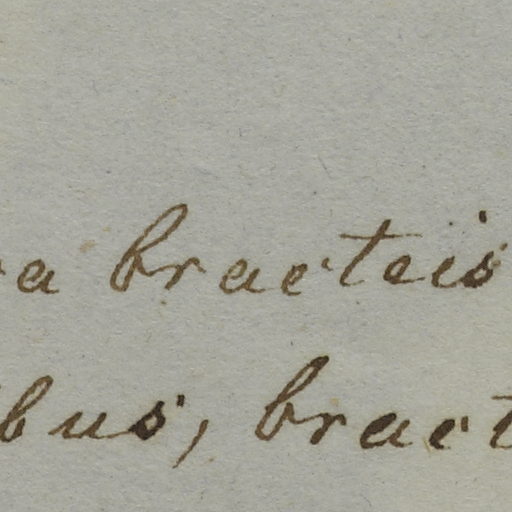 a bracteis
bus, bract